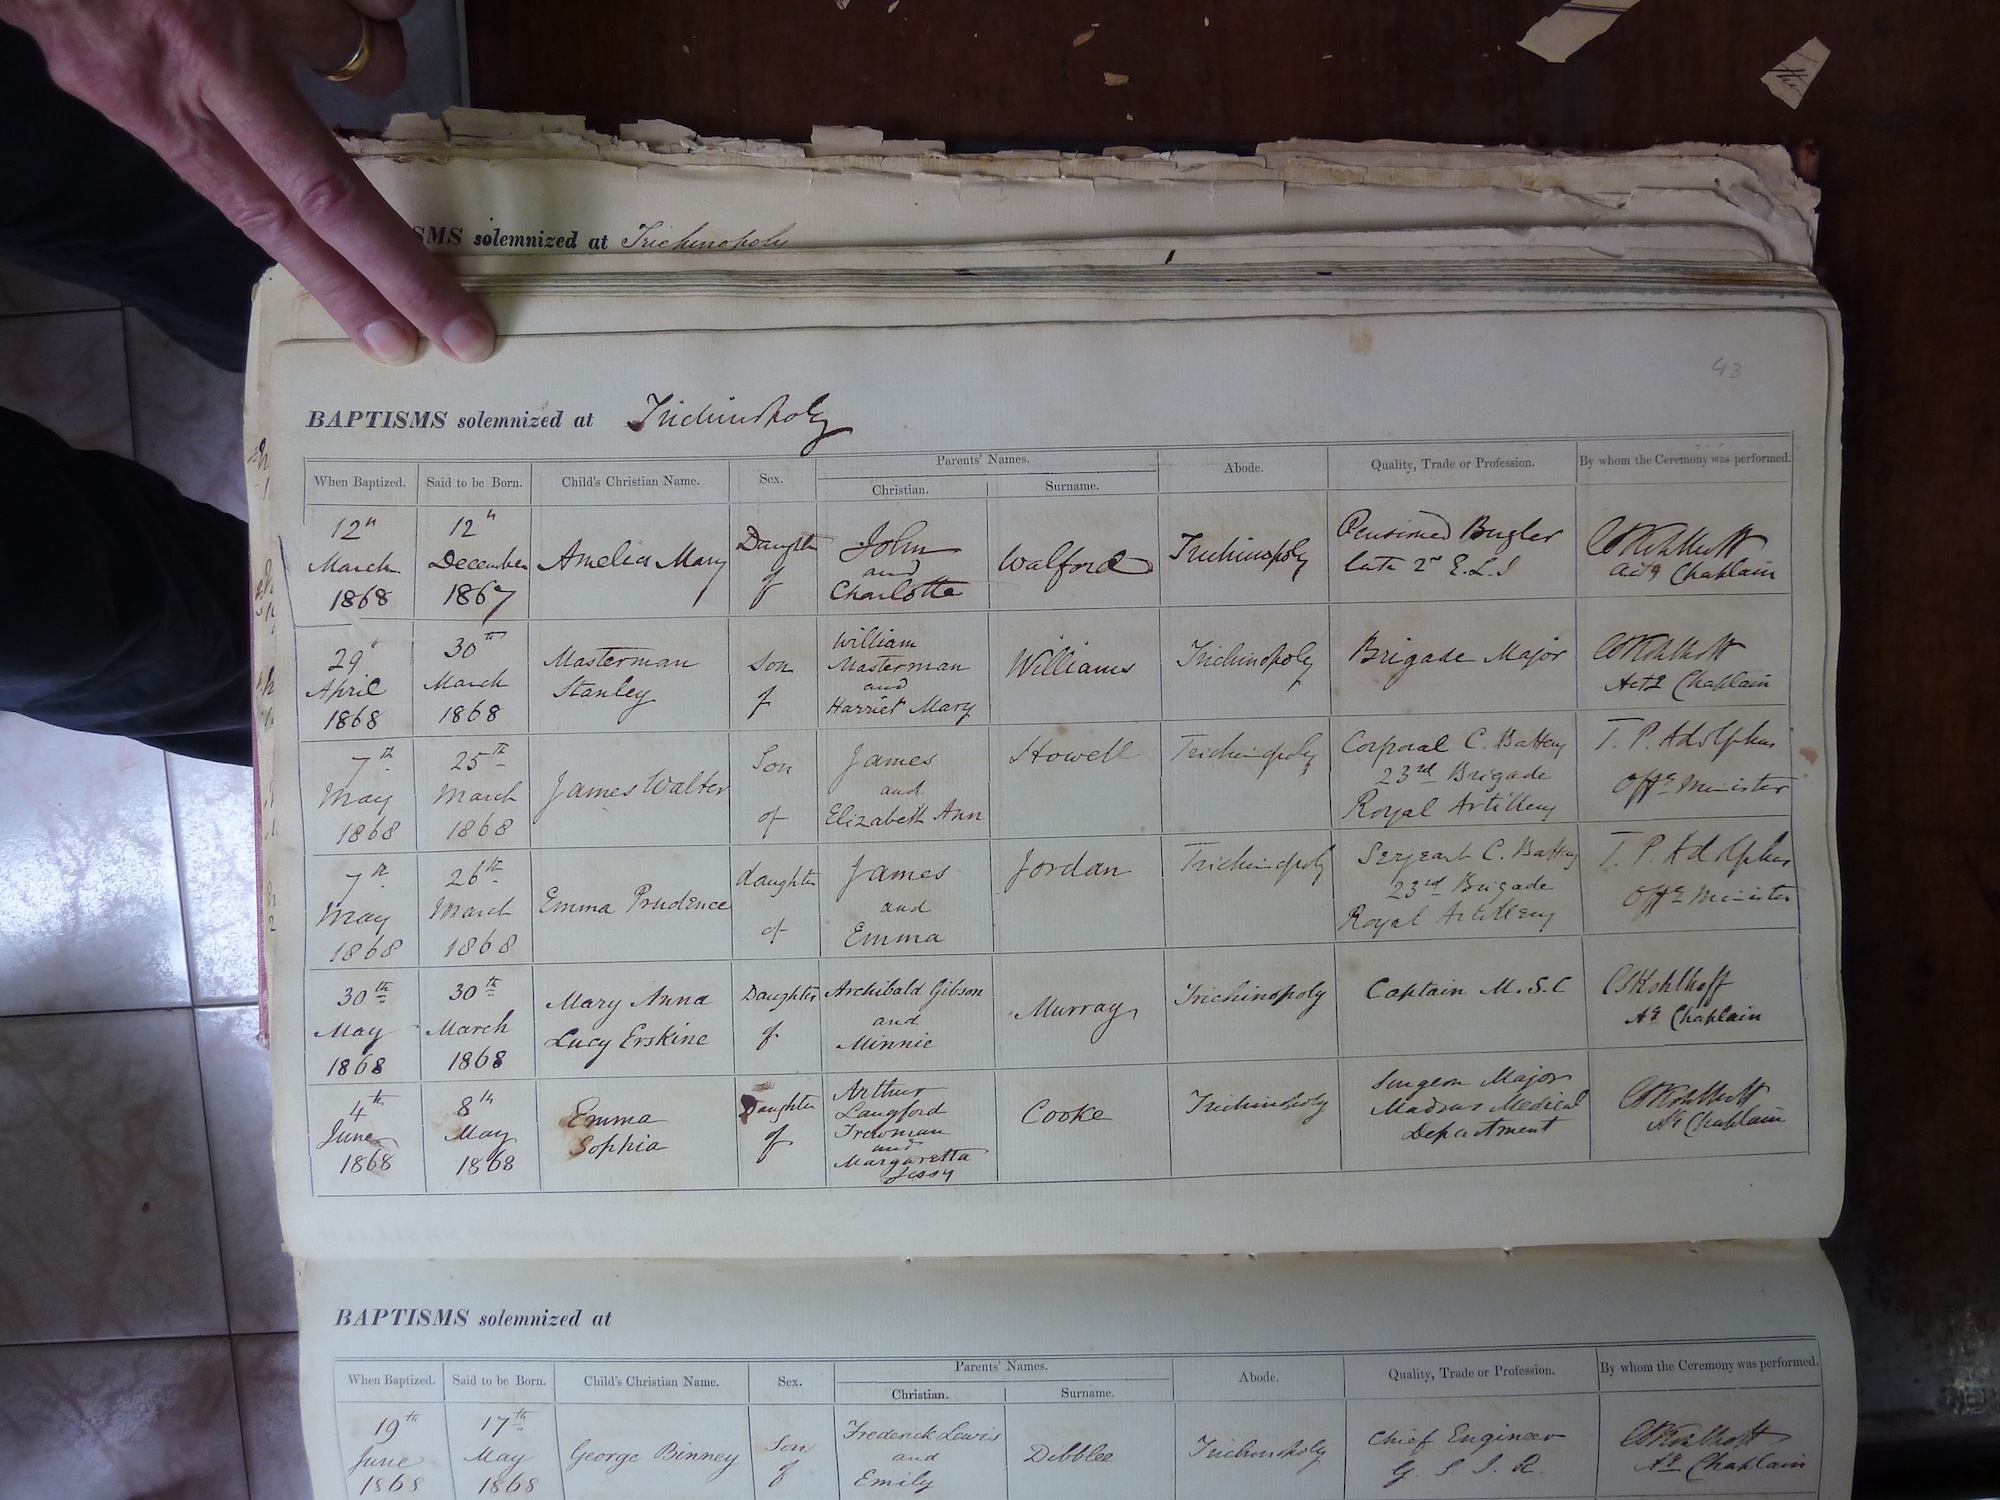 SMS solemnized at Trichinopoly
43
BAPTISMS solemnized at Trichinopoly
When Baptized. Said to be Born. Child's Christian Name. Sex. Parents' Names. Christian. Surname. Abode. Quality, Trade or Profession. By whom the Ceremony was performed.
12th March 1868 12th December 1867 Amelia Mary Daughter of John and Charlotte Walford Trichinopoly Pensioned Bugler late 2nd E.L.I CSKohlhoff Actg Chaplain
29th April 1868 30th March 1868 Masterman Stanley Son of William Masterman and Harriet Mary Williams Trichinopoly Brigade Major CSKohlhoff Actg Chaplain
7th May 1868 25th March 1868 James Walter Son of James and Elizabeth Ann Howell Trichinopoly Corporal C. Battery 23rd Brigade Royal Artillery T. P. Adolphus Offg Minister
7th May 1868 26th March 1868 Emma Prudence daughter of James and Emma Jordan Trichinopoly Serjeant C. Battery 23rd Brigade Royal Artillery T. P. Adolphus Offg Minister
30th May 1868 30th March 1868 Mary Anna Lucy Erskine Daughter of Archibald Gibson and Minnie Murray Trichinopoly Captain M.S.C CSKohlhoff Ag Chaplain
4th June 1868 8th May 1868 Emma Sophia Daughter of Arthur Langford Trewman and Margaretta Jessy Cooke Trichinopoly Surgeon Major Madras Medical Department CSKohlhoff Ag Chaplain
BAPTISMS solemnized at
When Baptized. Said to be Born. Child's Christian Name. Sex. Parents' Names. Christian. Surname. Abode. Quality, Trade or Profession. By whom the Ceremony was performed.
19th June 1868 17th May 1868 George Binney Son of Frederick Lewis and Emily Dibblee Trichinopoly Chief Engineer G. S. I. R. CSKohlhoff Ag Chaplain